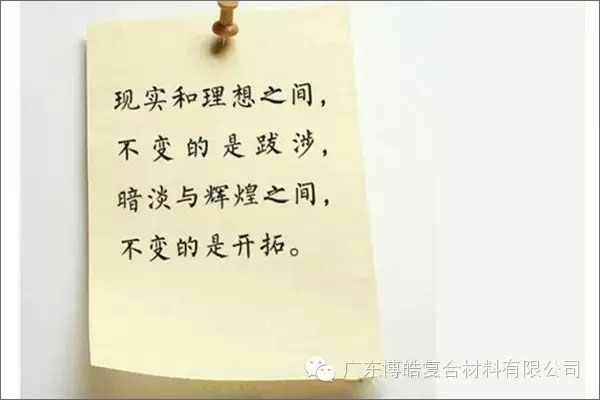 现实和理想之间，
不变的是跋涉，
暗淡与辉煌之间，
不变的是开拓。
广东博皓复合材料有限公司